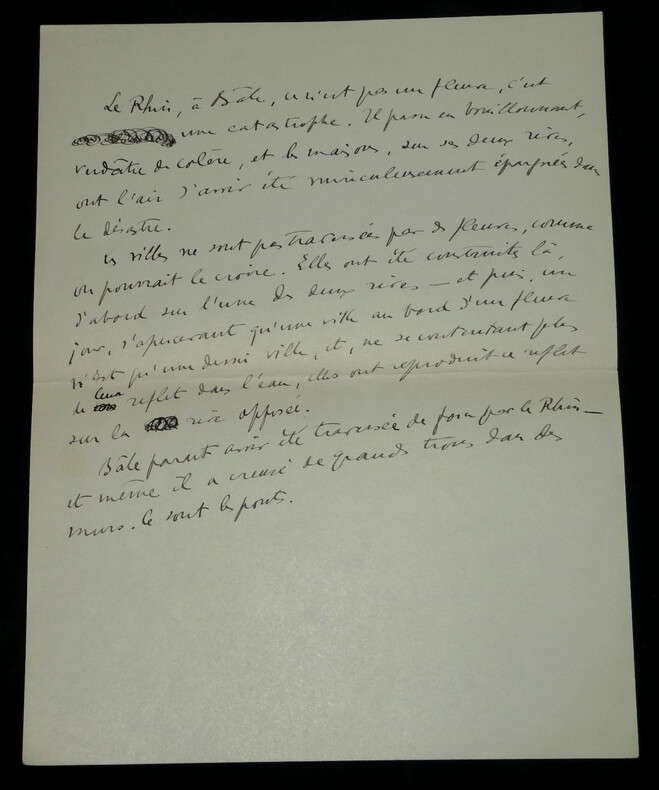 Le Rhin, à Bâle, ce n'est pas un fleuve, c'est
une catastrophe. Il passe en bouillonnant,
verdâtre de colère, et les maisons, sur ses deux rives,
ont l'air d'avoir été miraculeusement épargnées dans
le désastre.
Les villes ne sont pas traversées par des fleuves, comme
on pourrait le croire. Elles ont été construites là,
d'abord sur l'une des deux rives — et puis, un
jour, s'apercevant qu'une ville au bord d'un fleuve
n'est qu'une demi ville, et, ne se contentant plus
de leur reflet dans l'eau, elles ont reproduit ce reflet
sur la rive opposée.
Bâle paraît avoir été traversée de force par le Rhin —
et même il a creusé de grands trous dans des
murs. Ce sont les ponts.